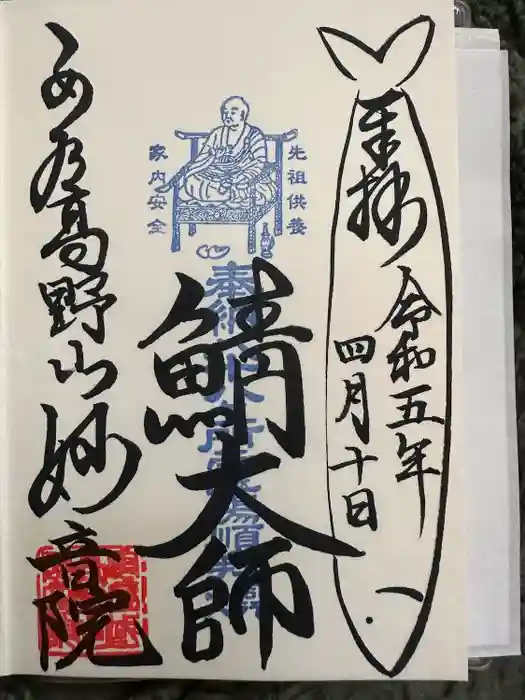 奉拝
令和五年
四月十日
先祖供養
家内安全
鯖大師
高野山妙音院